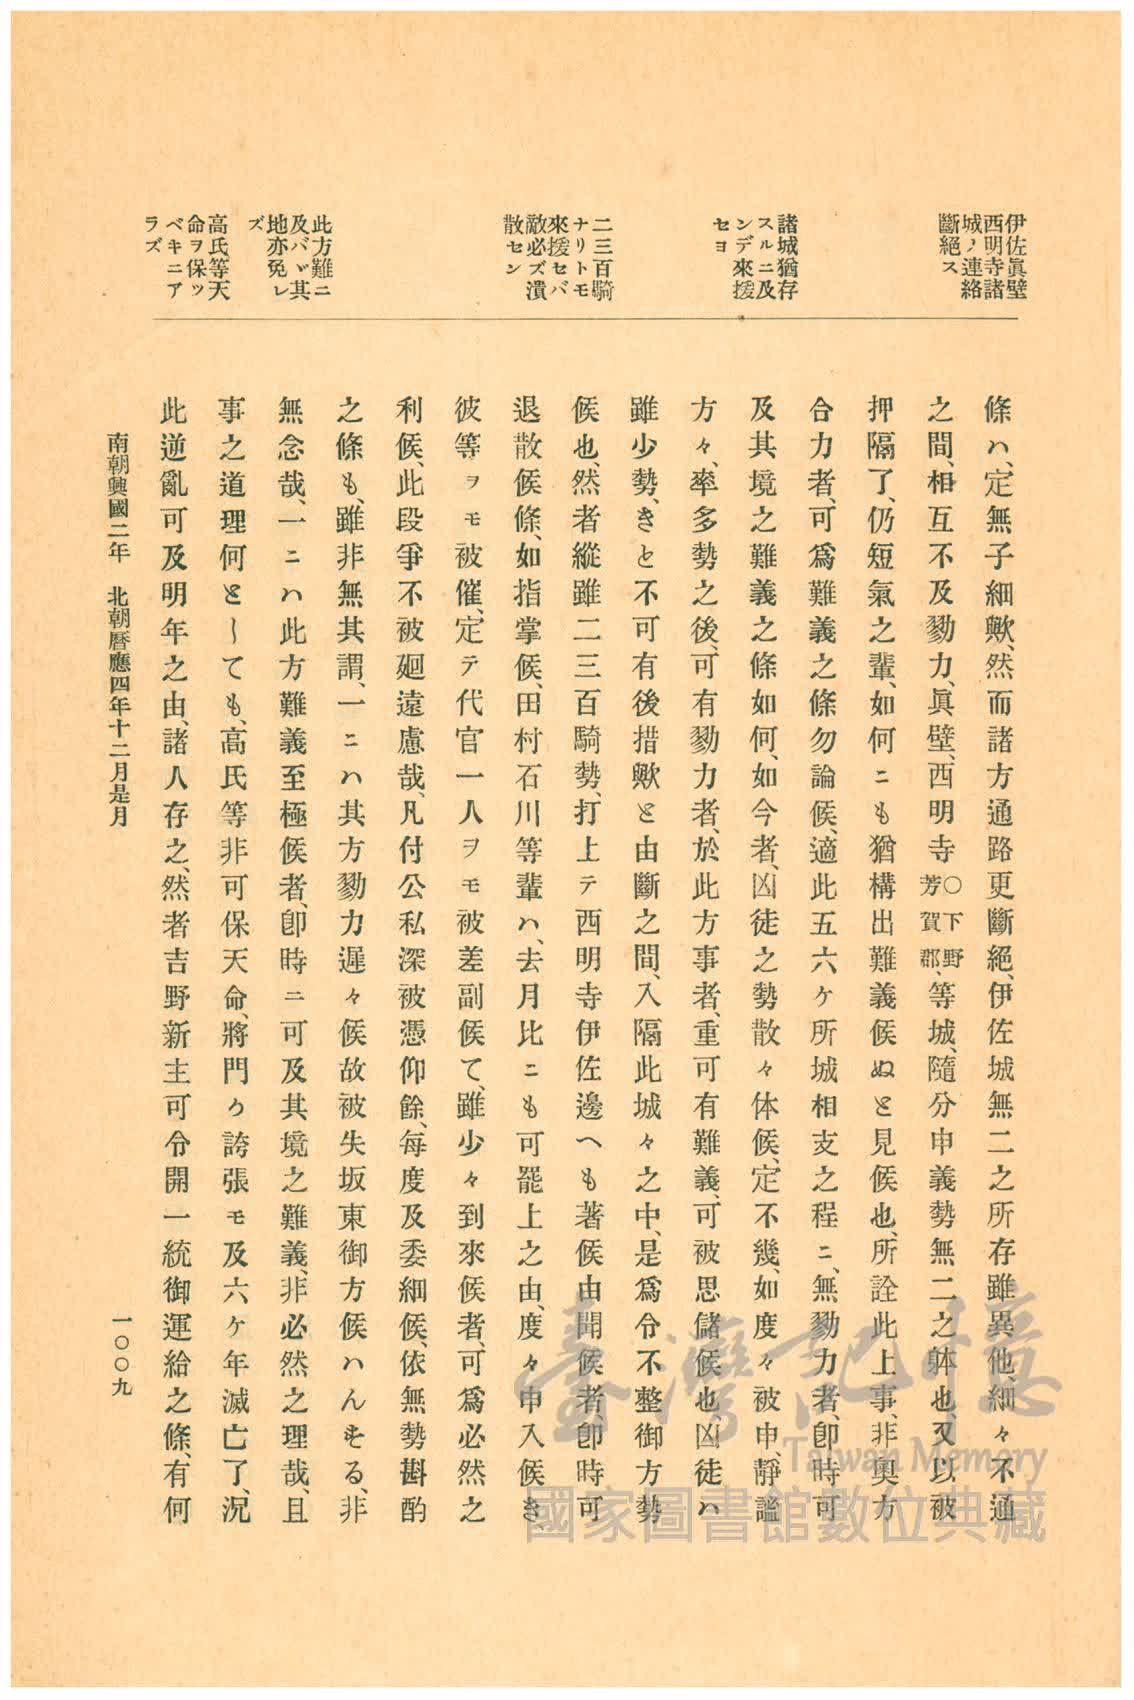 伊佐眞壁
西明寺諸
城ノ連絡
斷絕ス
諸城猶存
スルニ及
ンデ來援
セヨ
二三百騎
ナリトモ
來援セバ
敵必ズ潰
散セン
此方難ニ
及バヾ其
地亦免レ
ズ
高氏等天
命ヲ保ツ
ベキニア
ラズ
條ハ、定無子細歟、然而諸方通路更斷絕、伊佐城無二之所存雖異他、細々不通
之間、相互不及勠力、眞壁、西明寺〇下野芳賀郡、等城、隨分申義勢無二之躰也、又以被
押隔了、仍短氣之輩、如何ニも猶構出難義候ぬと見候也、所詮此上事、非奧方
合力者、可爲難義之條勿論候、適此五六ケ所城相支之程ニ、無勠力者、卽時可
及其境之難義之條如何、如今者、凶徒之勢散々体候、定不幾、如度々被申、靜謐
方々、率多勢之後、可有勠力者、於此方事者、重可有難義、可被思儲候也、凶徒ハ
雖少勢、きと不可有後措歟と由斷之間、入隔此城々之中、是爲令不整御方勢
候也、然者縱雖二三百騎勢、打上テ西明寺伊佐邊へも著候由聞候者、卽時可
退散候條、如指掌候、田村石川等輩ハ、去月比ニも可罷上之由、度々申入候き、
彼等ヲモ被催、定テ代官一人ヲモ被差副候て、雖少々到來候者、可爲必然之
利候、此段爭不被廻遠慮哉、凡付公私深被憑仰餘、每度及委細候、依無勢斟酌
之條も、雖非無其謂、一ニハ其方勠力遲々候故被失坂東御方候ハんする、非
無念哉、一ニハ此方難義至極候者、卽時ニ可及其境之難義、非必然之理哉、且
事之道理何としても、高氏等非可保天命、將門か誇張モ及六ケ年滅亡了、況
此逆亂可及明年之由、諸人存之、然者吉野新主可令開一統御運給之條、有何
南朝興國二年 北朝曆應四年十二月是月
一〇〇九
臺灣記憶
Taiwan Memory
國家圖書館數位典藏